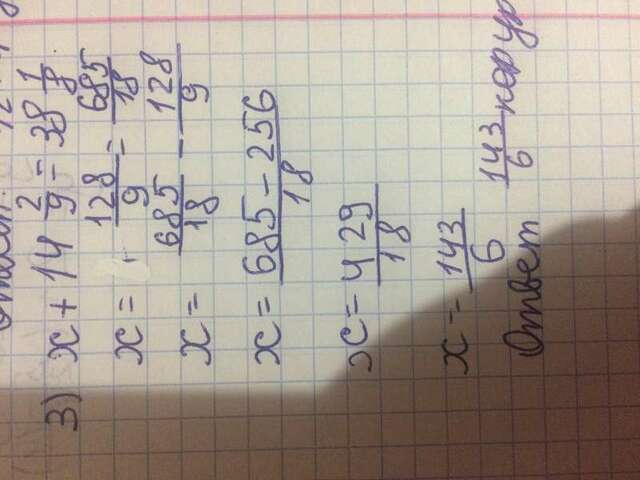 3) x + 14 2/9 = 38 1/8
x = 128/9 = 685/18
x = 685/18 - 128/9
x = 685 - 256/18
x = 429/18
x = 143/6
Ответ 143/6